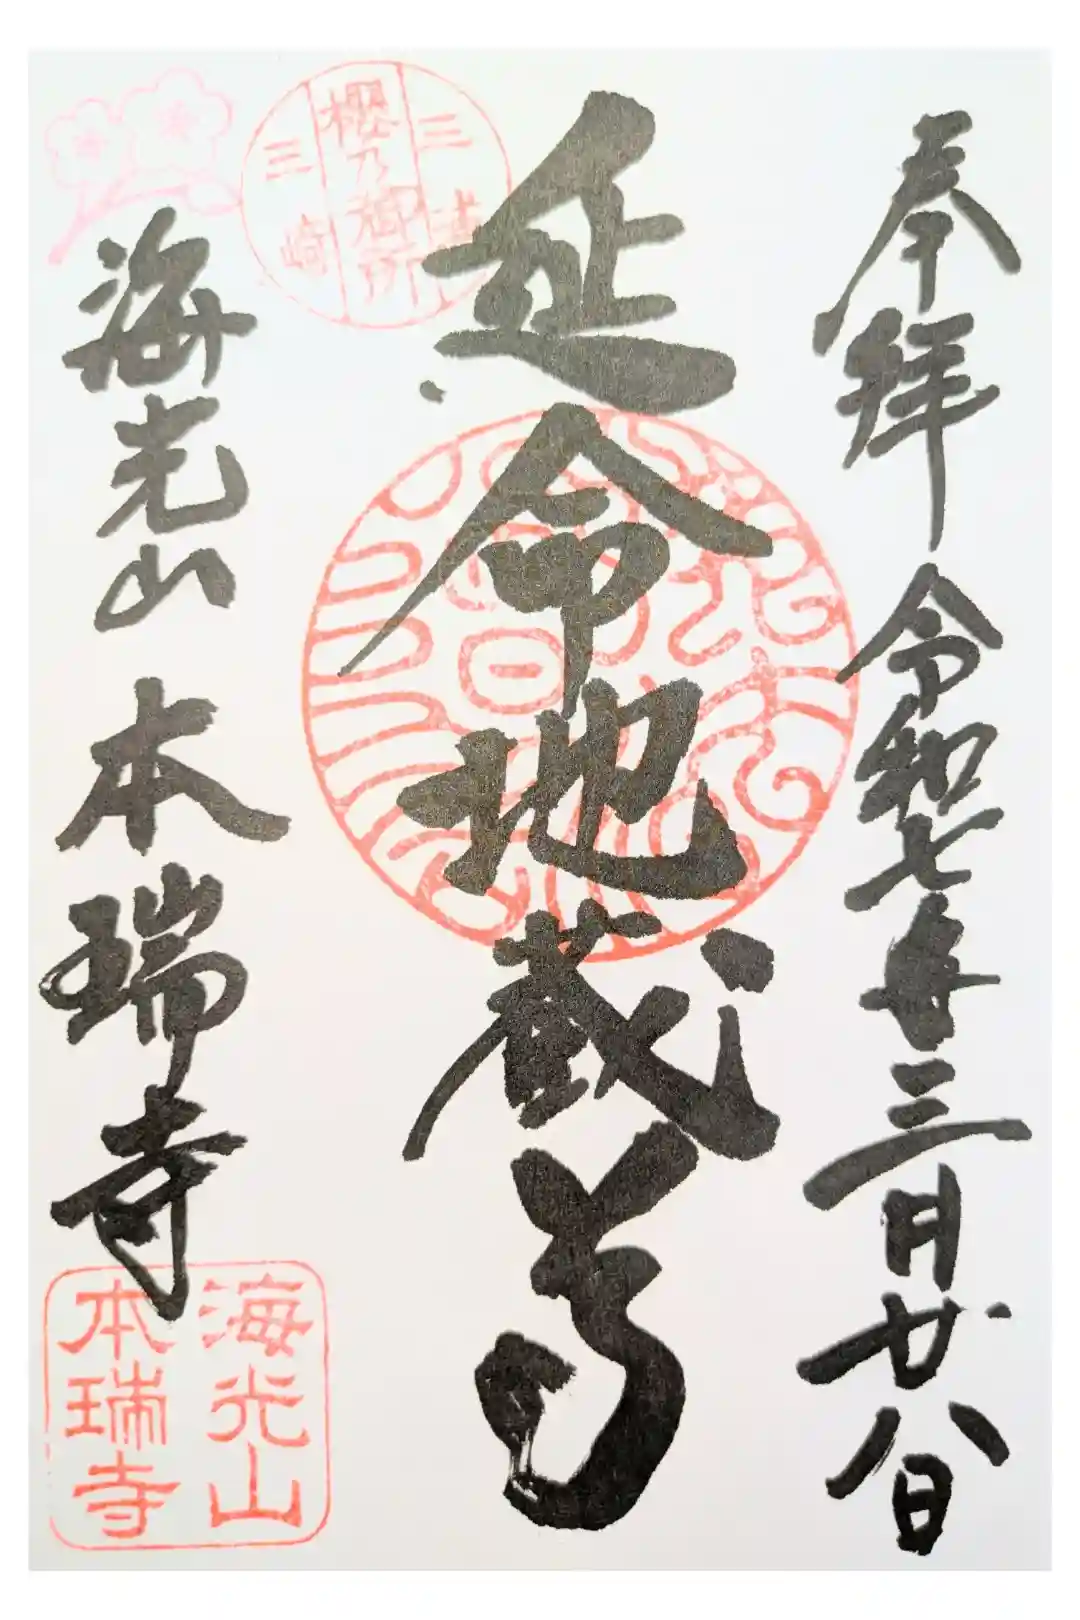 奉拝 令和七年三月廿八日
延命地蔵尊
三浦
櫻乃御所
三崎
海光山 本瑞寺
海光山
本瑞寺